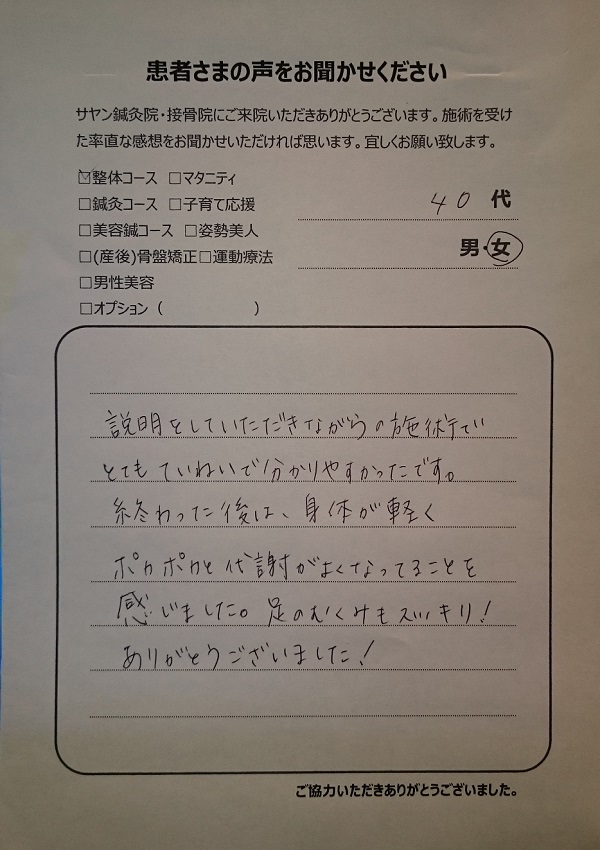 患者さまの声をお聞かせください
サヤン鍼灸院・接骨院にご来院いただきありがとうございます。施術を受け
た率直な感想をお聞かせいただければ思います。宜しくお願い致します。
☑整体コース □マタニティ
□鍼灸コース □子育て応援
□美容鍼コース □姿勢美人
□(産後)骨盤矯正□運動療法
□男性美容
□オプション（ ）
40 代
男・女
説明をしていただきながらの施術で
とてもていねいで分かりやすかったです。
終わった後は、身体が軽く
ポカポカと代謝がよくなってることを
感じました。足のむくみもスッキリ!
ありがとうございました!
ご協力いただきありがとうございました。